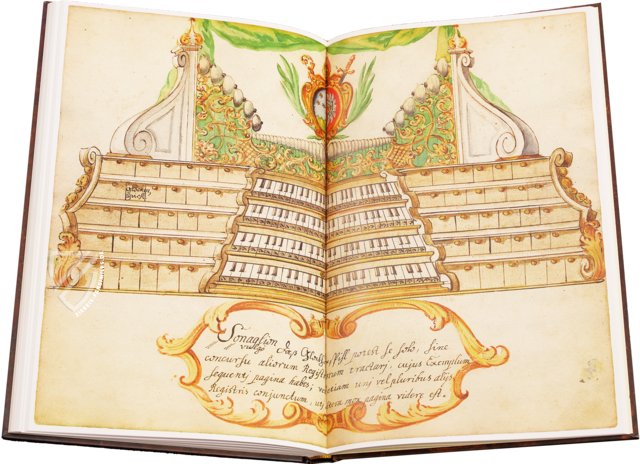 Sonaglion das Glockenspill potest se solo, sine
vulgo
concursu aliorum Registrorum tractari, cujus Exemplum
sequenti pagina habes; etiam unj vel pluribus alijs
Registris conjunctum, uti mox pagina videre est.